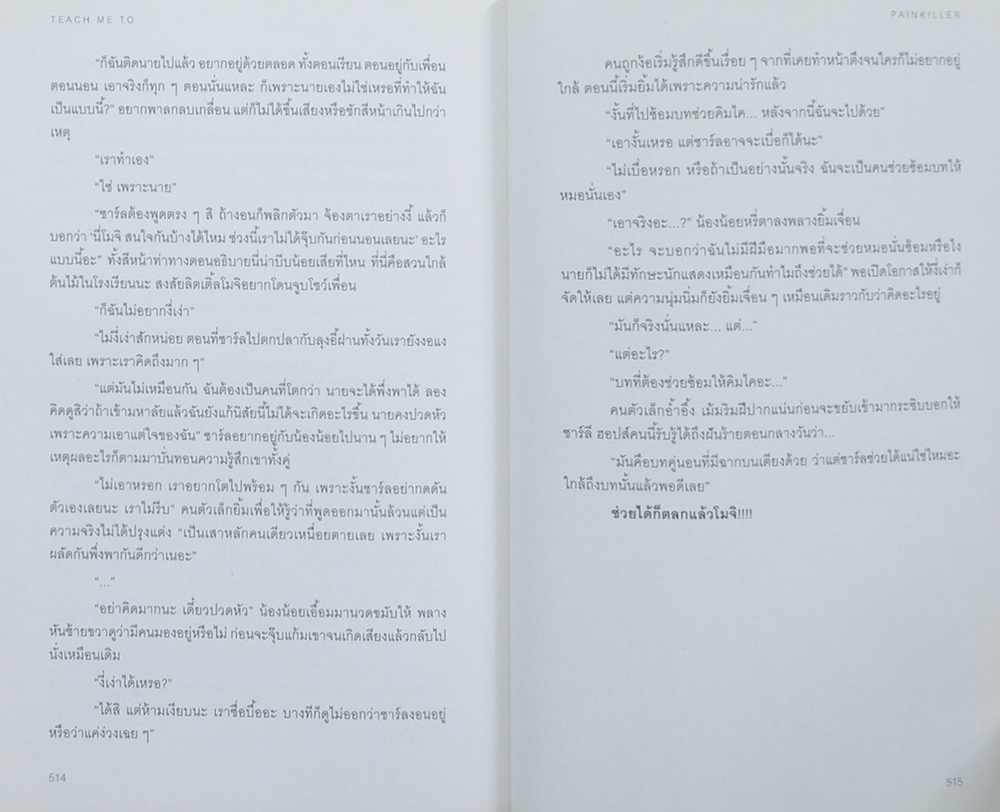 TEACH ME TO
“ก็ฉันติดนายไปแล้ว อยากอยู่ด้วยตลอด ทั้งตอนเรียน ตอนอยู่กับเพื่อน
ตอนนอน เอาจริงก็ทุก ๆ ตอนนั่นแหละ ก็เพราะนายเองไม่ใช่เหรอที่ทำให้ฉัน
เป็นแบบนี้?” อยากพาลกลบเกลื่อน แต่ก็ไม่ได้ขึ้นเสียงหรือชักสีหน้าเกินไปกว่า
เหตุ
“เราทำเอง”
“ใช่ เพราะนาย”
“ชาร์ลต้องพูดตรง ๆ สิ ถ้างอนก็พลิกตัวมา จ้องตาเราอย่างงี้ แล้วก็
บอกว่า ‘นี่โมจิ สนใจกันบ้างได้ไหม ช่วงนี้เราไม่ได้จุ๊บกันก่อนนอนเลยนะ’ อะไร
แบบนี้อะ” ทั้งสีหน้าท่าทางตอนอธิบายนี่น่าบีบน้อยเสียที่ไหน ที่นี่คือสวนใกล้
ต้นไม้ในโรงเรียนนะ สงสัยลิตเติ้ลโมจิอยากโดนจูบโชว์เพื่อน
“ก็ฉันไม่อยากงี่เง่า”
“ไม่งี่เง่าสักหน่อย ตอนที่ชาร์ลไปตกปลากับลุงอี้ฝานทั้งวันเรายังงอแง
ใส่เลย เพราะเราคิดถึงมาก ๆ”
“แต่มันไม่เหมือนกัน ฉันต้องเป็นคนที่โตกว่า นายจะได้พึ่งพาได้ ลอง
คิดดูสิว่าถ้าเข้ามหาลัยแล้วฉันยังแก้นิสัยนี้ไม่ได้จะเกิดอะไรขึ้น นายคงปวดหัว
เพราะความเอาแต่ใจของฉัน” ชาร์ลอยากอยู่กับน้องน้อยไปนาน ๆ ไม่อยากให้
เหตุผลอะไรก็ตามมาบั่นทอนความรู้สึกเขาทั้งคู่
“ไม่เอาหรอก เราอยากโตไปพร้อม ๆ กัน เพราะงั้นชาร์ลอย่ากดดัน
ตัวเองเลยนะ เราไม่รีบ” คนตัวเล็กยิ้มเพื่อให้รู้ว่าที่พูดออกมานั้นล้วนแต่เป็น
ความจริงไม่ได้ปรุงแต่ง “เป็นเสาหลักคนเดียวเหนื่อยตายเลย เพราะงั้นเรา
ผลัดกันพึ่งพากันดีกว่าเนอะ”
“...”
“อย่าคิดมากนะ เดี๋ยวปวดหัว” น้องน้อยเอื้อมมานวดขมับให้ พลาง
หันซ้ายขวาดูว่ามีคนมองอยู่หรือไม่ ก่อนจะจุ๊บแก้มเขาจนเกิดเสียงแล้วกลับไป
นั่งเหมือนเดิม
“งี่เง่าได้เหรอ?”
“ได้สิ แต่ห้ามเงียบนะ เราซื่อบื้ออะ บางทีก็ดูไม่ออกว่าชาร์ลงอนอยู่
หรือว่าแค่ง่วงเฉย ๆ”
514
PAINKILLER
คนถูกง้อเริ่มรู้สึกดีขึ้นเรื่อย ๆ จากที่เคยทำหน้าตึงจนใครก็ไม่อยากอยู่
ใกล้ ตอนนี้เริ่มยิ้มได้เพราะความน่ารักแล้ว
“งั้นที่ไปซ้อมบทช่วยคิมไค... หลังจากนี้ฉันจะไปด้วย”
“เอางั้นเหรอ แต่ชาร์ลอาจจะเบื่อก็ได้นะ”
“ไม่เบื่อหรอก หรือถ้าเป็นอย่างนั้นจริง ฉันจะเป็นคนช่วยซ้อมบทให้
หมอนั่นเอง”
“เอาจริงอะ...?” น้องน้อยหรี่ตาลงพลางยิ้มเจื่อน
“อะไร จะบอกว่าฉันไม่มีฝีมือมากพอที่จะช่วยหมอนั่นซ้อมหรือไง
นายก็ไม่ได้มีทักษะนักแสดงเหมือนกันทำไมถึงช่วยได้” พอเปิดโอกาสให้งี่เง่าก็
จัดให้เลย แต่ความนุ่มนิ่มก็ยังยิ้มเจื่อน ๆ เหมือนเดิมราวกับว่าคิดอะไรอยู่
“มันก็จริงนั่นแหละ... แต่...”
“แต่อะไร?”
“บทที่ต้องช่วยซ้อมให้คิมไคอะ...”
คนตัวเล็กอ้ำอึ้ง เม้มริมฝีปากแน่นก่อนจะขยับเข้ามากระซิบบอกให้
ชาร์ลี ฮอปส์คนนี้รับรู้ได้ถึงฝันร้ายตอนกลางวันว่า...
“มันคือบทคู่นอนที่มีฉากบนเตียงด้วย ว่าแต่ชาร์ลช่วยได้แน่ใช่ไหมอะ
ใกล้ถึงบทนั้นแล้วพอดีเลย”
ช่วยได้ก็ตลกแล้วโมจิ!!!!
515